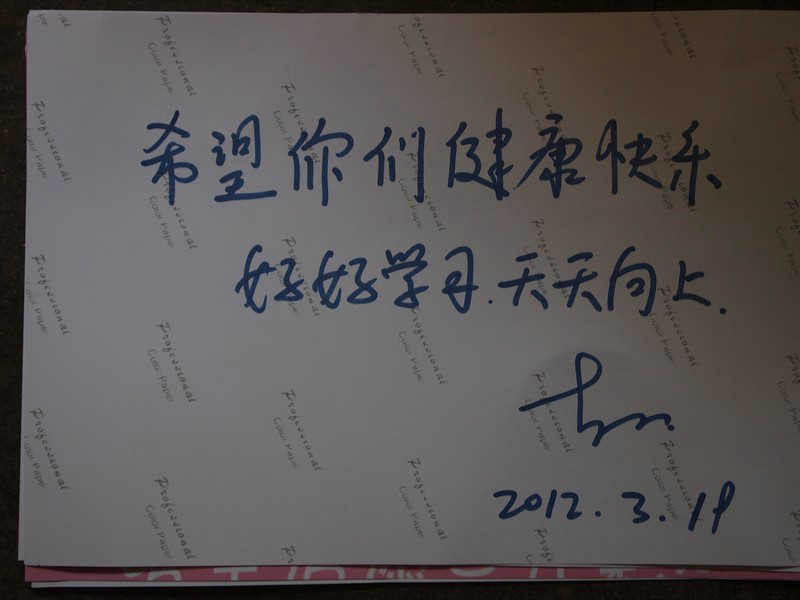 希望你们健康快乐
好好学习.天天向上.
2012.3.19
Professional
Color Paper